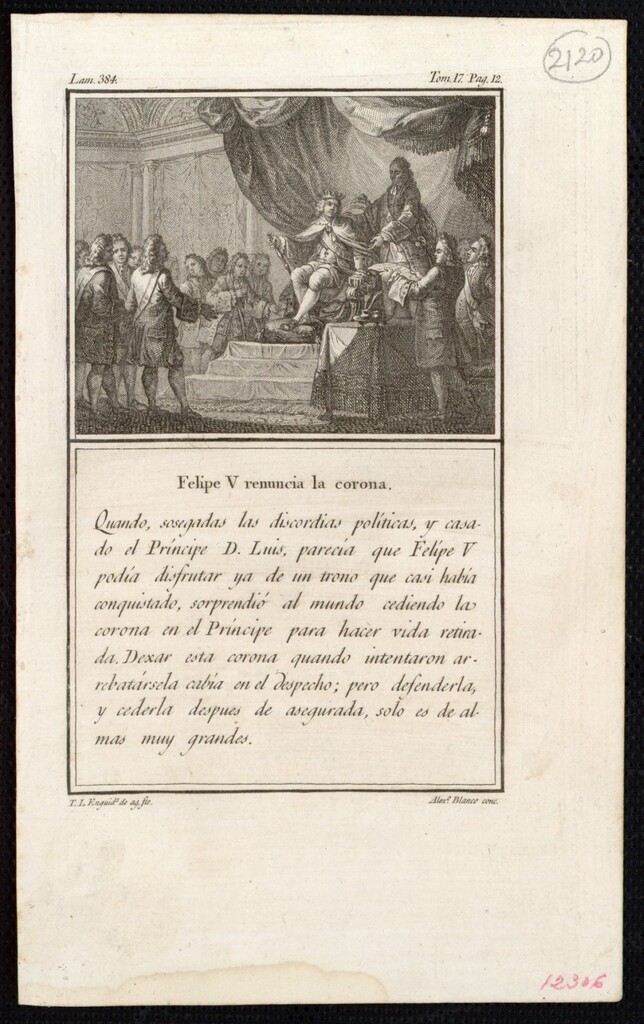 2120
Lam. 384.
Tom. 17. Pag. 12.
Felipe V renuncia la corona.
Quando, sosegadas las discordias políticas, y casa-
do el Príncipe D. Luis, parecia que Felipe V
podia disfrutar ya de un trono que casi había
conquistado, sorprendió al mundo cediendo la
corona en el Príncipe para hacer vida retira-
da. Dexar esta corona quando intentaron ar-
rebatársela cabia en el despecho; pero defenderla,
y cederla despues de asegurada, solo es de al-
mas muy grandes.
T. L. Enguid.s de ag. fte.
Alex.o Blanco conc.
12306